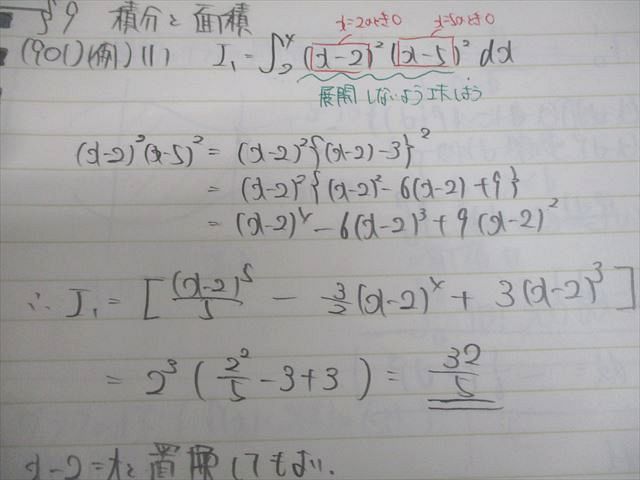 §9 積分と面積
x=2のとき0 x=5のとき0
(901)(例)(1) I₁=∫₂⁴(x-2)²(x-5)²dx
展開しないよう工夫しよう
(x-2)²(x-5)² = (x-2)²{(x-2)-3}²
= (x-2)²{(x-2)²-6(x-2)+9}
= (x-2)⁴-6(x-2)³+9(x-2)²
∴ I₁ = [(x-2)⁵/5 - 3/2(x-2)⁴ + 3(x-2)³]
= 2³(2²/5-3+3) = 32/5
x-2=tと置換してもよい.